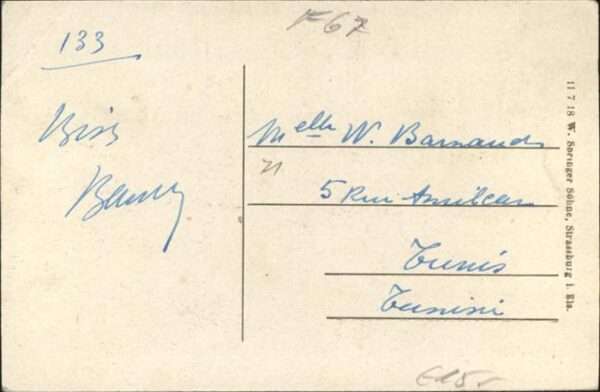 133
F 67
Melle W. Barnaud
5 Rue Amilcar
Tunis
Tunisi
€15
11 7 18 W. Springer Söhne, Strassburg i. Els.